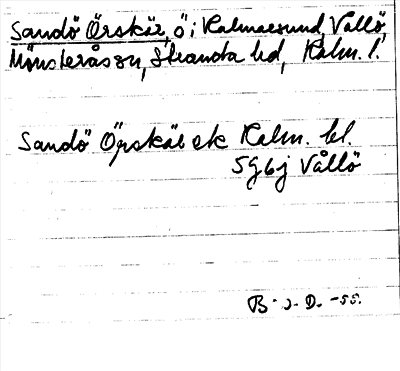 Sandö Örskär, ö i Kalmarsund, Vållö,
Mönsterås sn, Stranda hd, Kalm. l.
Sandö Örskär ek Kalm. bl.
5G6j Vållö
B. J. D. -55.